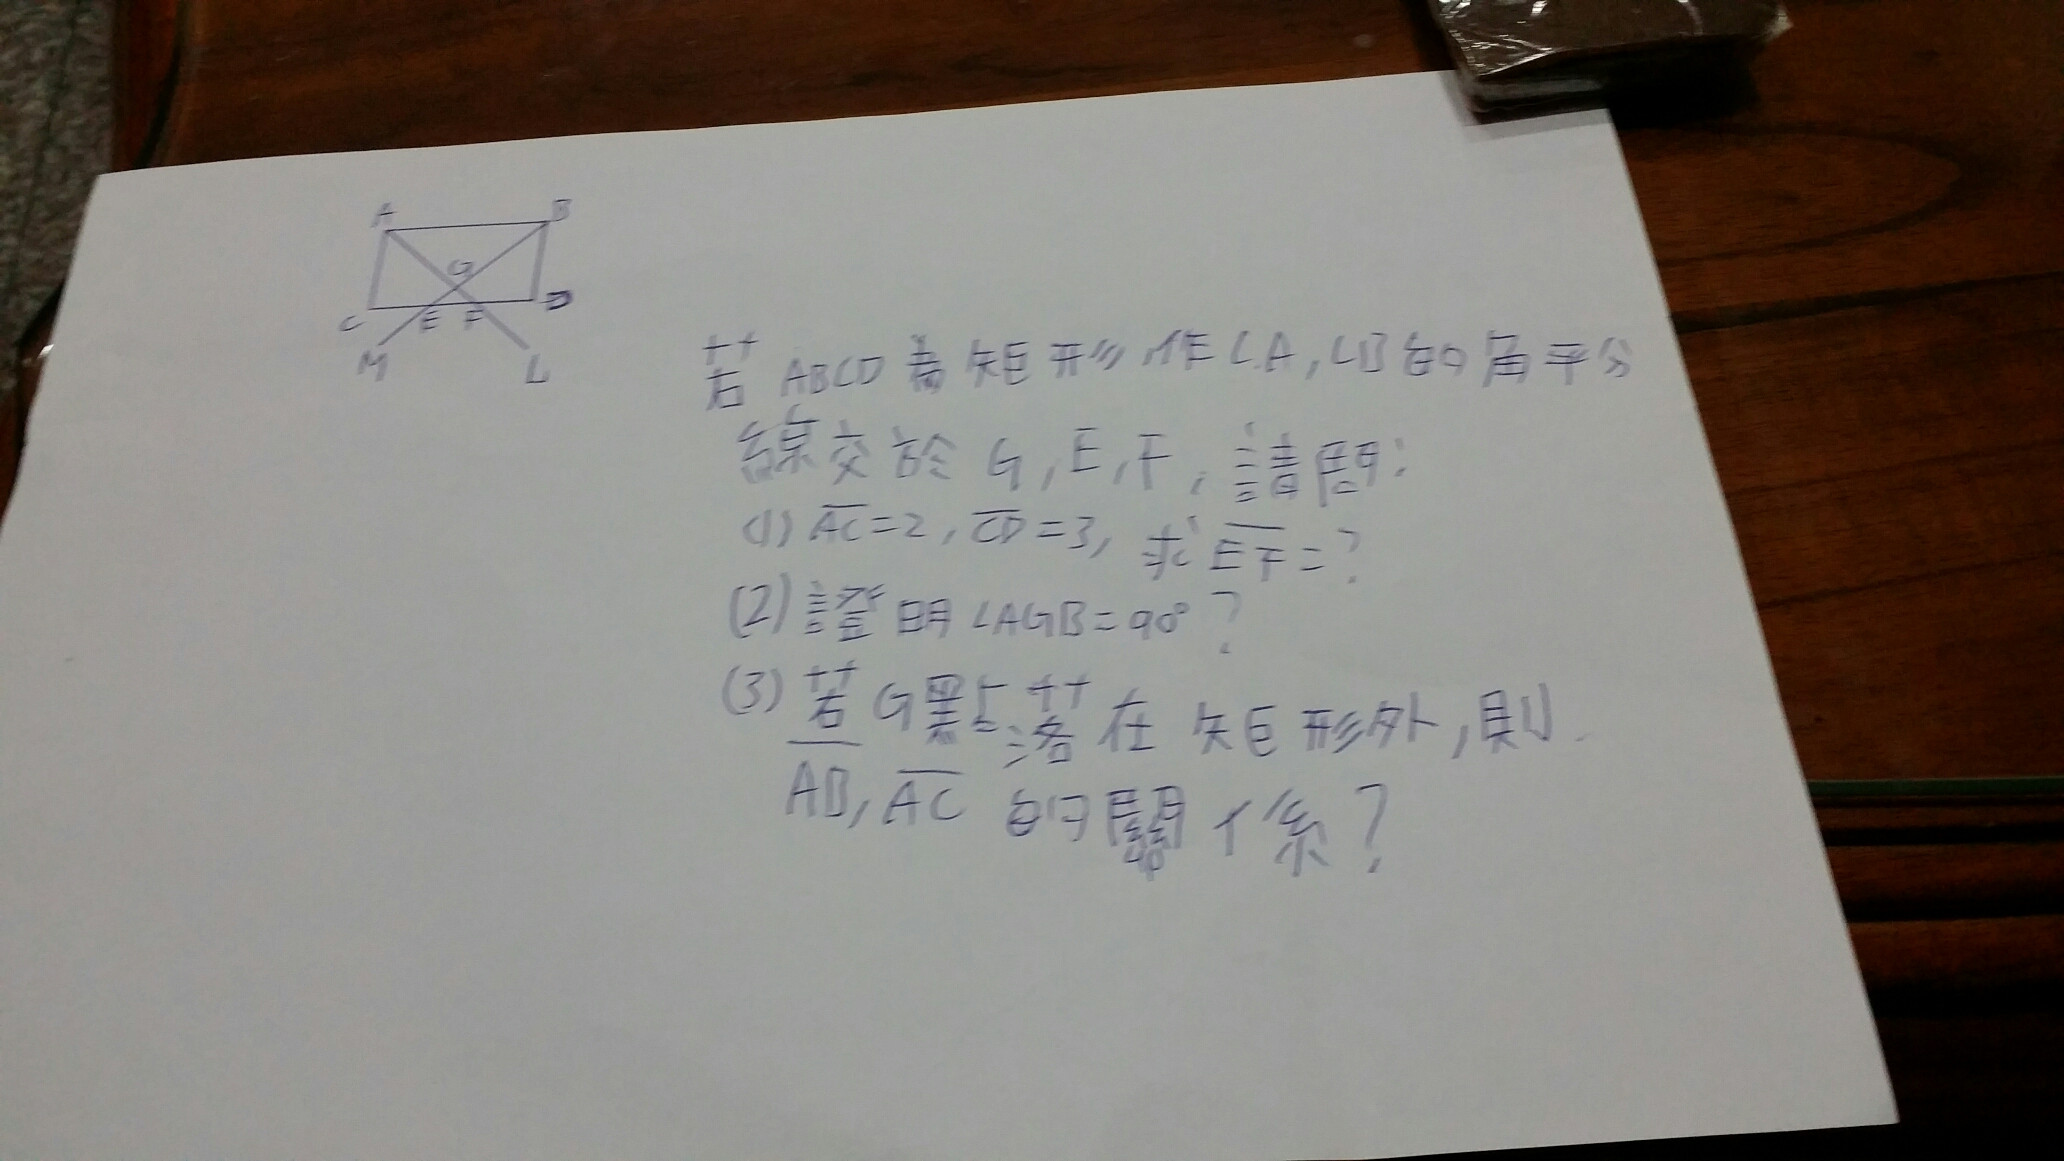 A B
G
C E F D
M L
若 ABCD 為矩形,作∠A,∠B的角平分
線交於 G,E,F,請問:
(1) AC=2,CD=3, 求 EF=?
(2) 證明∠AGB=90°?
(3) 若G點落在矩形外,則
AB,AC 的關係?